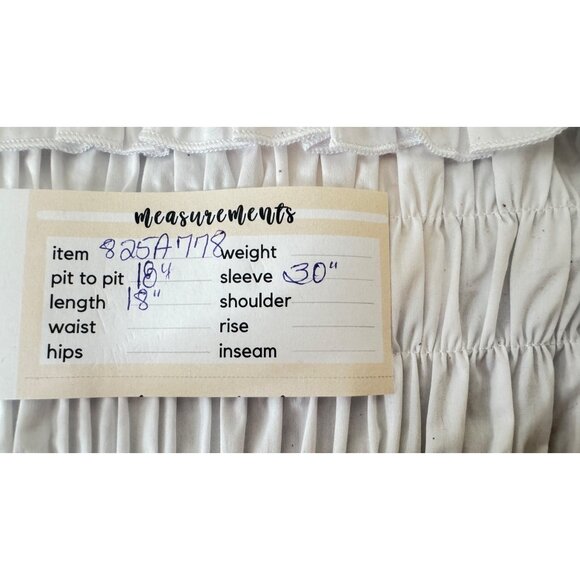 measurements
item 825A778 weight
pit to pit 18" sleeve 30"
length 18" shoulder
waist rise
hips inseam